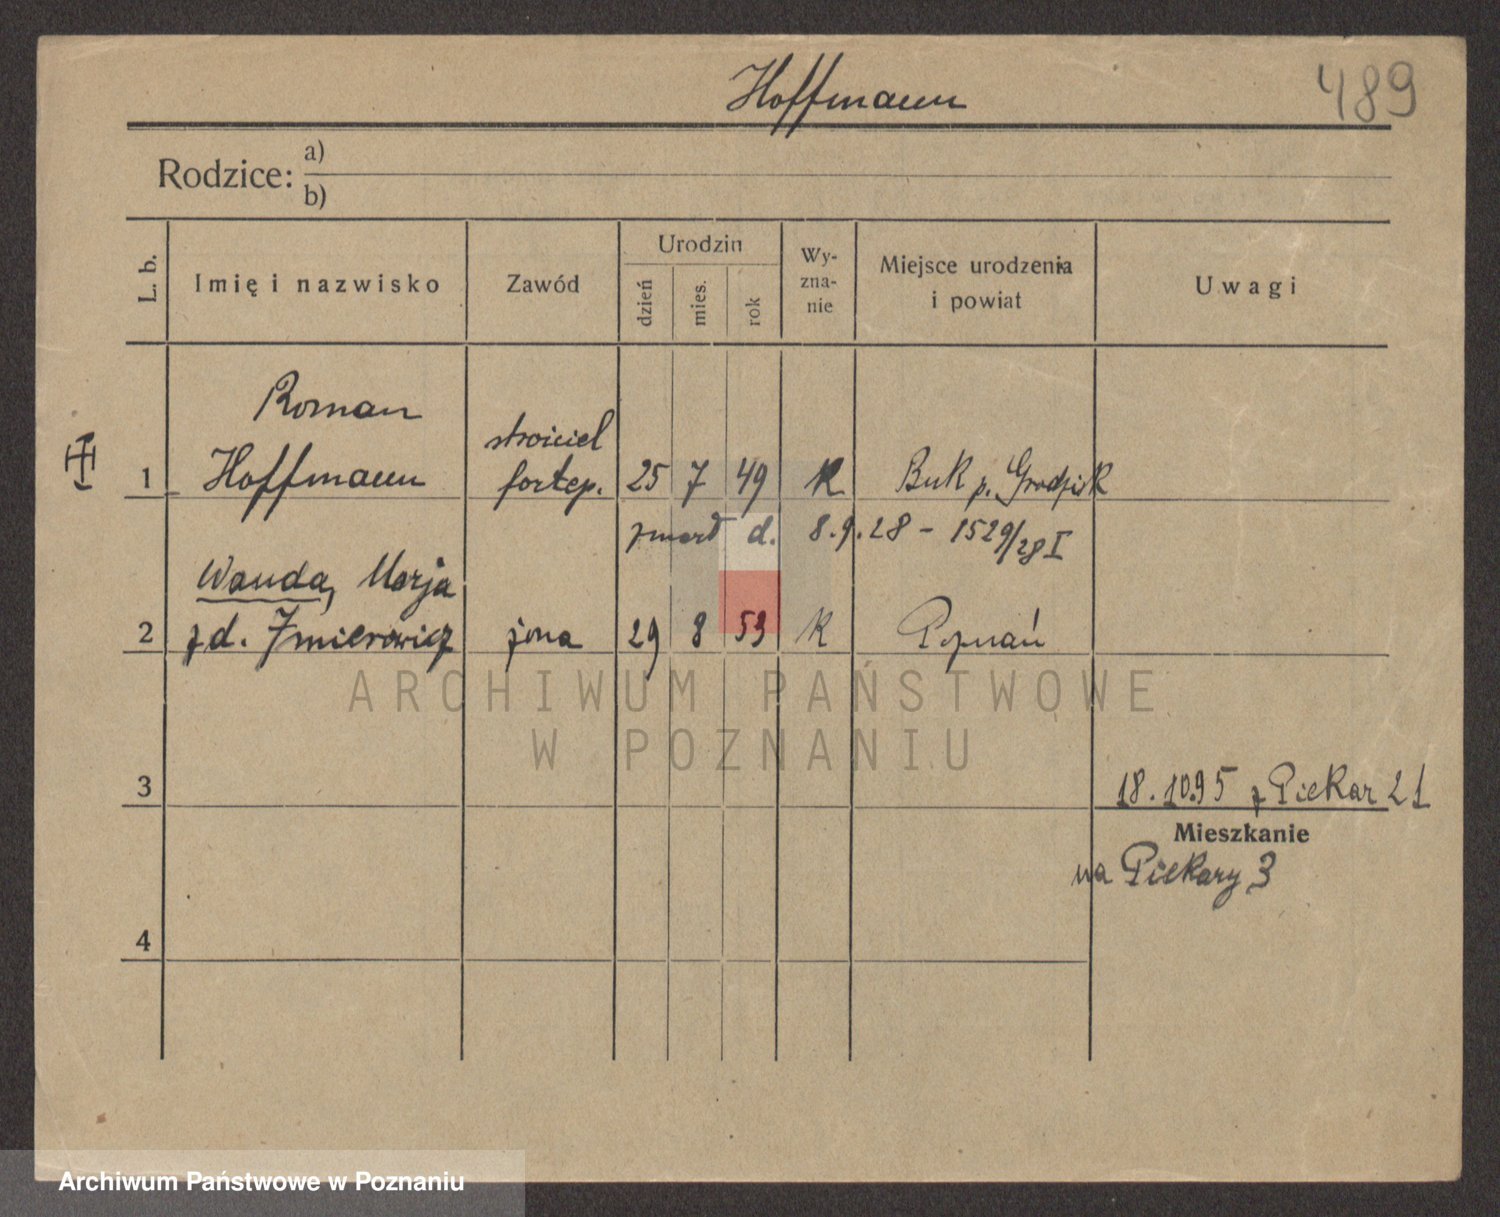 Hoffmann
489
Rodzice: a)
b)
L. b.
Imię i nazwisko
Zawód
Urodzin
dzień
mies.
rok
Wy-
zna-
nie
Miejsce urodzenia
i powiat
Uwagi
Roman
Hoffmann
stroiciel
fortep.
1
25 7 49 k Buk p. Grodzisk
zmarł d. 8.9.28 - 1529/28 I
Wanda, Marja
2 z d. Zmierowicz żona 29 8 53 k Poznań
ARCHIWUM PAŃSTWOWE
W POZNANIU
3
18.10.95 z Piekar 21
Mieszkanie
na Piekary 3
4
Archiwum Państwowe w Poznaniu